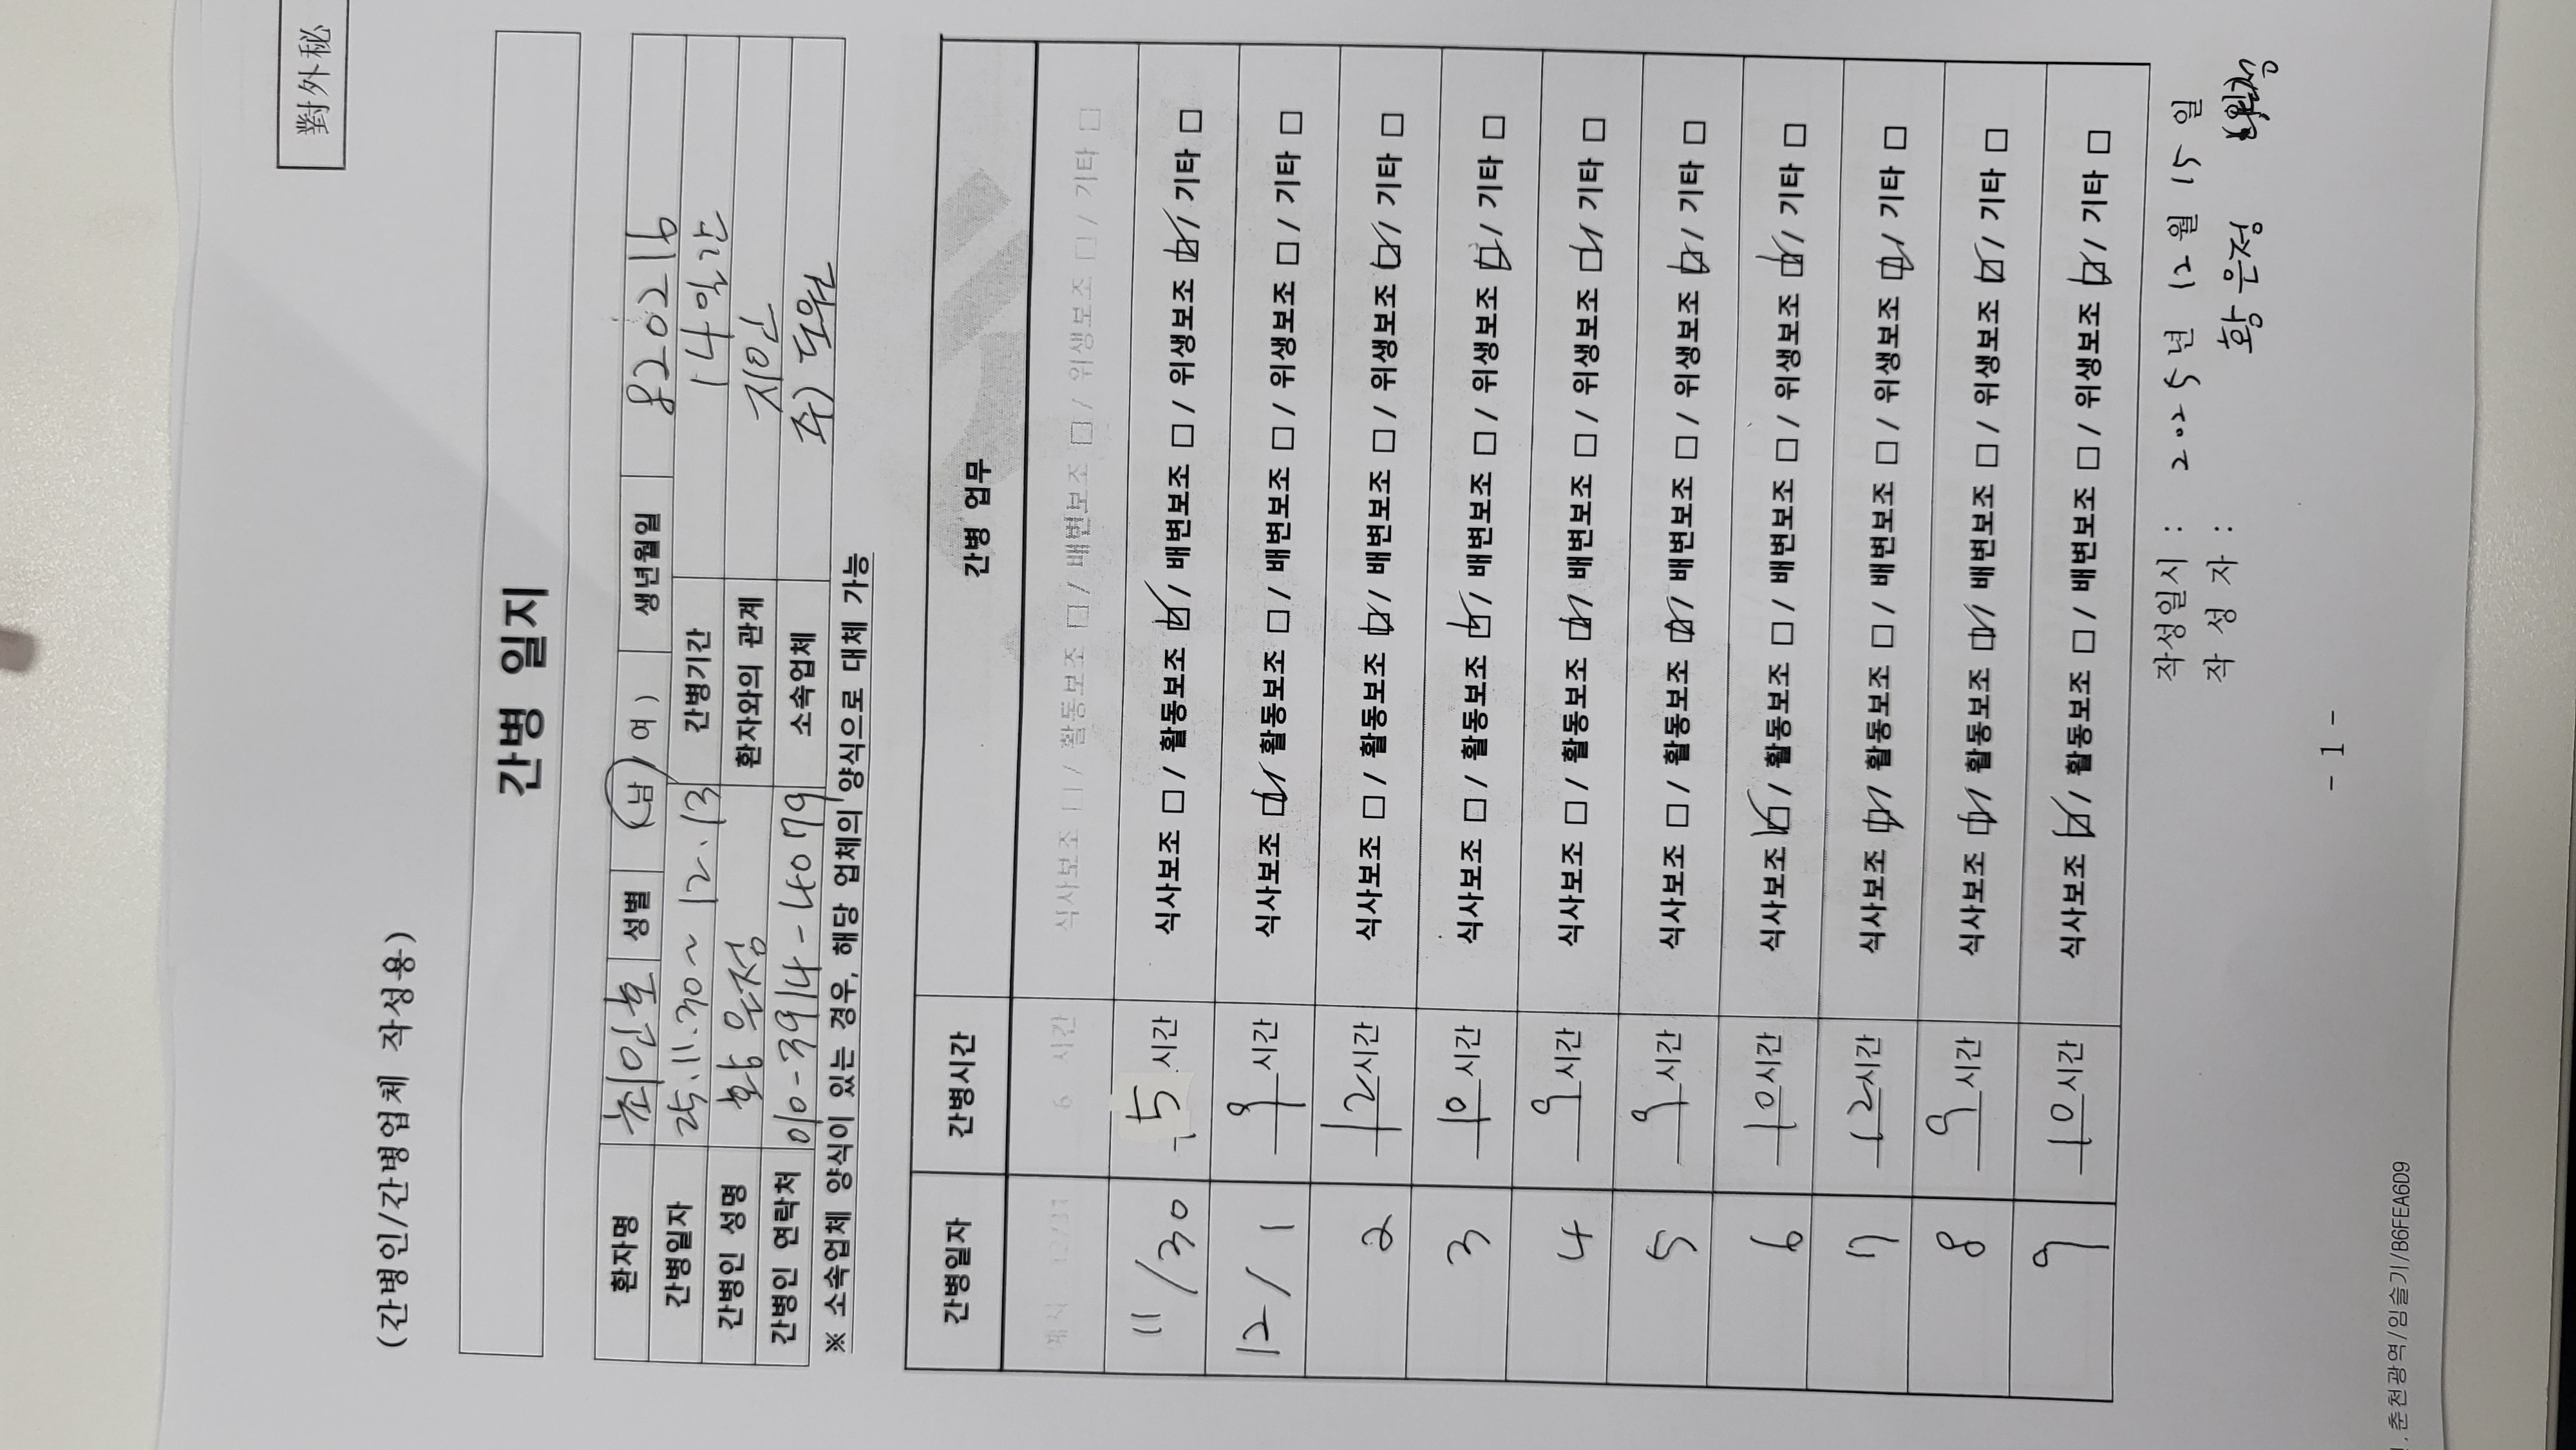 對外秘
(간병인/간병업체 작성용)
간병 일지
환자명 최인호 성별 (남 / 여) 생년월일 820216
간병일자 25.11.30~12.13 간병기간 14일간
간병인 성명 황은정 환자와의 관계 지인
간병인 연락처 010-3914-4079 소속업체 주) 도원
※ 소속업체 양식이 있는 경우, 해당 업체의 양식으로 대체 가능
간병일자 간병시간 간병 업무
예시 12/31 6 시간 식사보조 □ / 활동보조 □ / 배변보조 □ / 위생보조 □ / 기타 □
11/30 5 시간 식사보조 □ / 활동보조 ☑ / 배변보조 □ / 위생보조 ☑ / 기타 □
12/1 9 시간 식사보조 ☑ / 활동보조 □ / 배변보조 □ / 위생보조 □ / 기타 □
2 12 시간 식사보조 □ / 활동보조 ☑ / 배변보조 □ / 위생보조 ☑ / 기타 □
3 10 시간 식사보조 □ / 활동보조 ☑ / 배변보조 □ / 위생보조 ☑ / 기타 □
4 9 시간 식사보조 □ / 활동보조 ☑ / 배변보조 □ / 위생보조 ☑ / 기타 □
5 9 시간 식사보조 □ / 활동보조 ☑ / 배변보조 □ / 위생보조 ☑ / 기타 □
6 10 시간 식사보조 ☑ / 활동보조 □ / 배변보조 □ / 위생보조 ☑ / 기타 □
7 12 시간 식사보조 ☑ / 활동보조 □ / 배변보조 □ / 위생보조 ☑ / 기타 □
8 9 시간 식사보조 ☑ / 활동보조 ☑ / 배변보조 □ / 위생보조 ☑ / 기타 □
9 10 시간 식사보조 ☑ / 활동보조 □ / 배변보조 □ / 위생보조 ☑ / 기타 □
작성일시 : 2025년 12월 15일
작 성 자 : 황은정
- 1 -
춘천광역/임슬기/B6FEA6D9